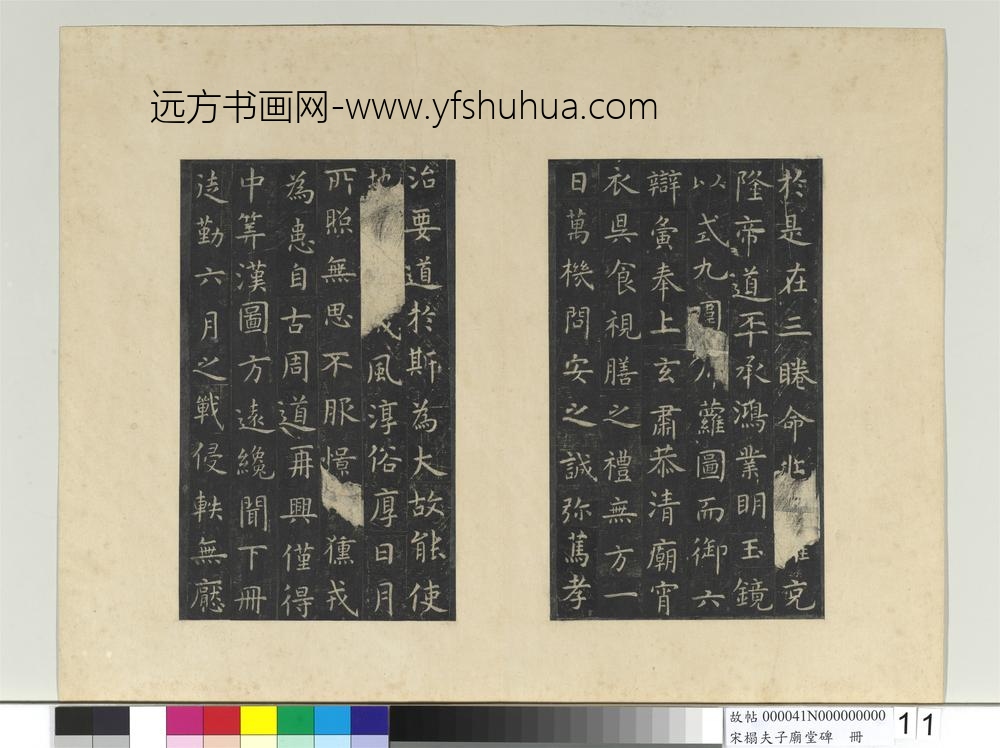 远方书画网-www.yfshuhua.com
於是在三睠命克
隆帝道丕承鴻業明玉鏡
以式九圍蘿圖而御六
辯寅奉上玄肅恭清廟宵
衣昃食視膳之禮無方一
日萬機問安之誠弥篤孝
治要道於斯為大故能使
地風淳俗厚日月
所照無思不服憬獯戎
為患自古周道再興僅得
中筭漢圖方遠纔聞下冊
徒勤六月之戰侵軼無
故帖 000041N000000000
宋榻夫子廟堂碑 冊
11